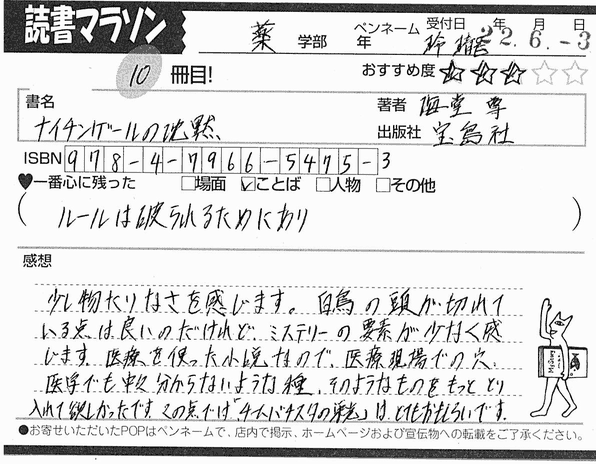 読書マラソン
薬 学部 年 ペンネーム 玲瓏 受付日 22年 6月 -3日
10 冊目! おすすめ度 ★★★☆☆
書名 著者 海堂 尊
ナイチンゲールの沈黙 出版社 宝島社
ISBN 978-4-7966-5475-3
♥一番心に残った □場面 ☑ことば □人物 □その他
(ルールは破られるためにあり)
感想
少し物たりなさを感じます。白鳥の頭が切れて
いる点は良いのだけれど、ミステリーの要素が少なく感
じます。医療を使った小説なので、医療現場での穴、
医学でも中々分からないような種、そのようなものをもっと とり
入れて欲しかったです。この点では「チーム・バチスタの栄光」は、とてもおもしろいです。
Mystery
●お寄せいただいたPOPはペンネームで、店内で掲示、ホームページおよび宣伝物への転載をご了承ください。